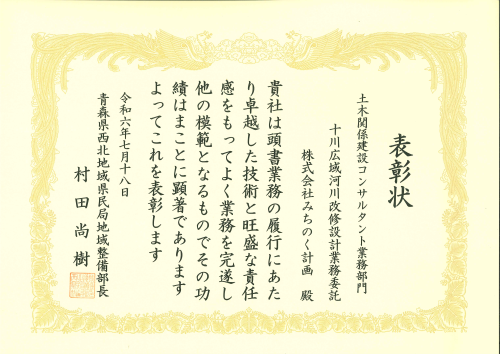 表彰状
土木関係建設コンサルタント業務部門
十川広域河川改修設計業務委託
株式会社みちのく計画 殿
貴社は頭書業務の履行にあた
り卓越した技術と旺盛な責任
感をもってよく業務を完遂し
他の模範となるものでその功
績はまことに顕著であります
よってこれを表彰します
令和六年七月十八日
青森県西北地域県民局地域整備部長
村田尚樹